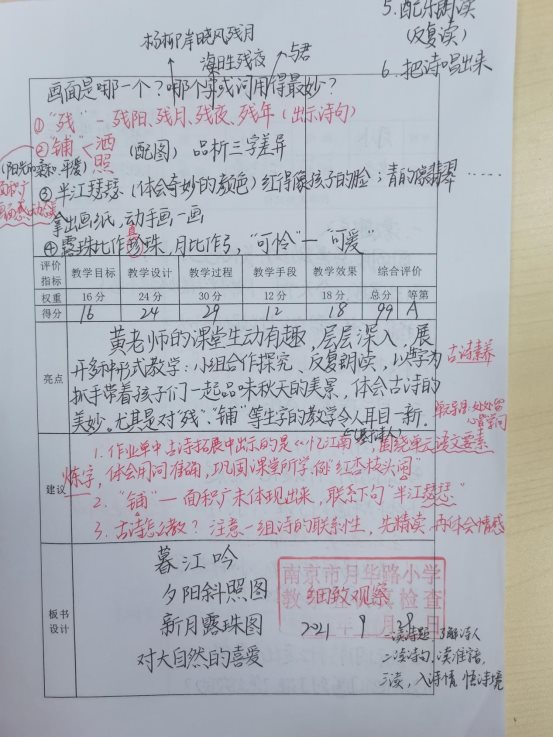 5. 配乐朗读
(反复读)
6. 把诗唱出来
杨柳岸晓风残月
海日生残夜
与君
画面是哪一个？哪个字或词用得最妙？
①“残”－残阳、残月、残夜、残年（出示诗句）
②“铺” 洒
照
（配图） 品析三字差异
(阳光的柔和、平缓)
面积广
画面感、动感
③ 半江瑟瑟（体会奇妙的颜色）红得像孩子的脸；青的像翡翠……
拿出画纸，动手画一画
④ 露珠比作珍珠，月比作弓，“可怜”—“可爱”
真
评价指标 教学目标 教学设计 教学过程 教学手段 教学效果 综合评价
权重 16分 24分 30分 12分 18分 总分 等第
得分 16 24 29 12 18 99 A
亮点
黄老师的课堂生动有趣，层层深入，展
开多种形式教学：小组合作探究、反复朗读，以学为
古诗素养
抓手带着孩子们一起品味秋天的美景，体会古诗的
美妙。尤其是对“残”、“铺”等生字的教学令人耳目一新。
建议
1. 作业单中古诗拓展中出示的是《忆江南》，围绕单元语文要素
炼字，体会用词准确，巩固课堂所学，例“红杏枝头闹”
2. “铺”—面积广未体现出来，联系下句“半江瑟瑟”
3. 古诗怎么教？注意一组诗的联系性，先精读，再体会情感
板书设计
暮江吟
夕阳斜照图
新月露珠图
对大自然的喜爱
细致观察
南京市月华路小学
检查
2021 9 28
一读诗题，了解诗人
二读诗句，读准音
三读，入诗情，悟诗境